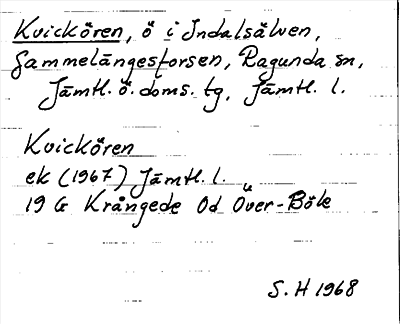 Kvickören, ö i Indalsälven,
Gammelängesforsen, Ragunda sn,
Jämtl. ö. doms. tg, Jämtl. l.
Kvickören
ek (1967) Jämtl. l.
19 G Krångede Od Över-Böle
S. H 1968